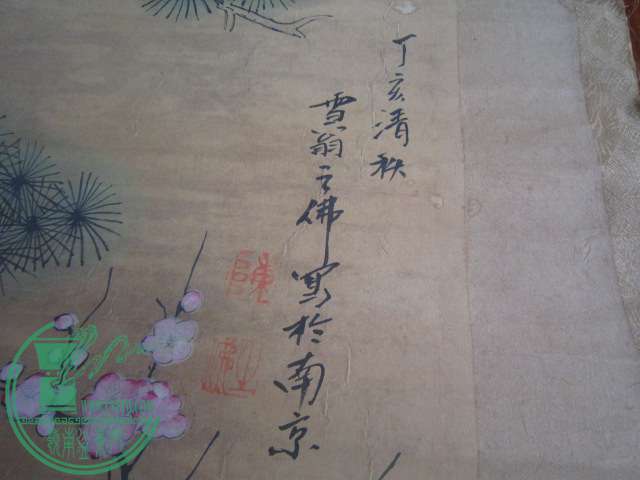 丁亥清秋
雪翁之佛写於南京
陳